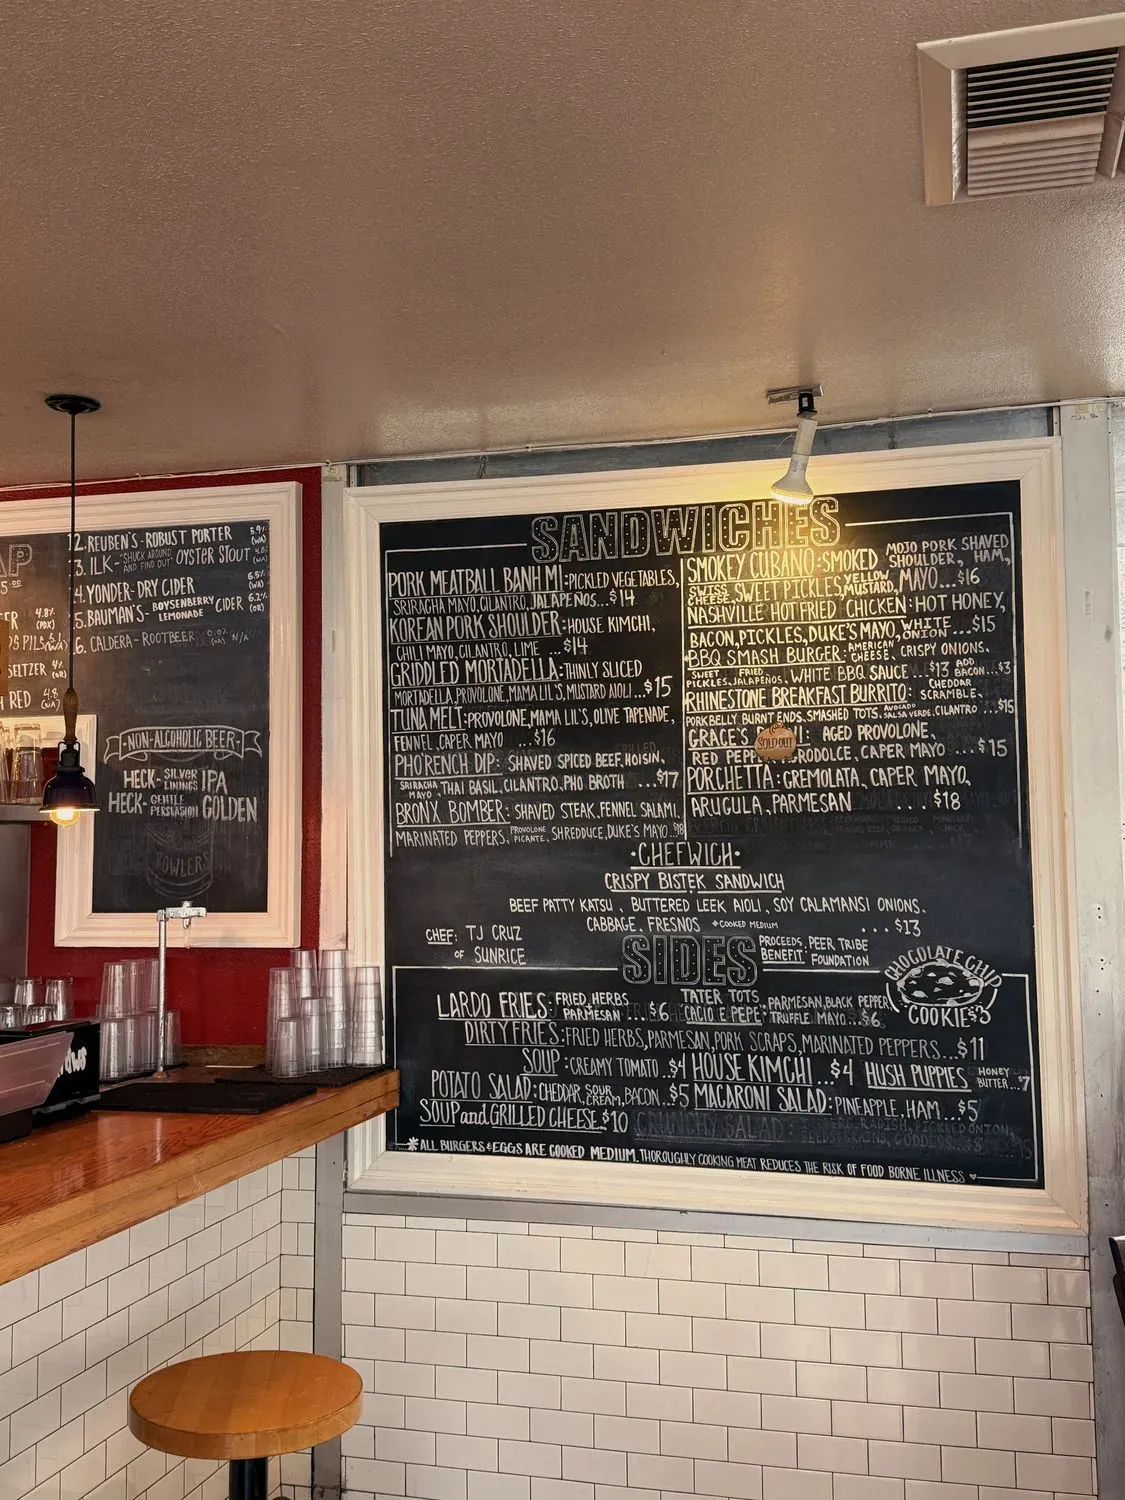 AP
12. REUBEN'S - ROBUST PORTER 5.9% (WA)
13. ILK - "SHUCK AROUND AND FIND OUT" OYSTER STOUT 4.8% (WA)
4. YONDER - DRY CIDER 6.5% (WA)
5. BAUMAN'S - BOYSENBERRY LEMONADE CIDER 6.2% (OR)
6. CALDERA - ROOTBEER 0.0% (OR) N/A
4.8% (PDX)
SELTZER 4% (OR)
RED 4.8 (WA)
·NON-ALCOHOLIC BEER·
HECK - SILVER LININGS IPA
HECK - GENTLE PERSUASION GOLDEN
GROWLERS
SANDWICHES
PORK MEATBALL BANH MI: PICKLED VEGETABLES,
SRIRACHA MAYO, CILANTRO, JALAPEÑOS...$14
KOREAN PORK SHOULDER: HOUSE KIMCHI,
CHILI MAYO, CILANTRO, LIME ...$14
GRIDDLED MORTADELLA: THINLY SLICED
MORTADELLA, PROVOLONE, MAMA LIL'S, MUSTARD AIOLI...$15
TUNA MELT: PROVOLONE, MAMA LIL'S, OLIVE TAPENADE,
FENNEL, CAPER MAYO ...$16
PHO'RENCH DIP: SHAVED SPICED BEEF, HOISIN,
SRIRACHA MAYO, THAI BASIL, CILANTRO, PHO BROTH ...$17
BRONX BOMBER: SHAVED STEAK, FENNEL SALAMI,
MARINATED PEPPERS, PROVOLONE PICANTE, SHREDDUCE, DUKE'S MAYO...$18
SMOKEY CUBANO: SMOKED MOJO PORK SHAVED SHOULDER, HAM,
SWISS CHEESE, SWEET PICKLES, YELLOW MUSTARD, MAYO...$16
NASHVILLE HOT FRIED CHICKEN: HOT HONEY,
BACON, PICKLES, DUKE'S MAYO, WHITE ONION ...$15
BBQ SMASH BURGER: AMERICAN CHEESE, CRISPY ONIONS,
SWEET PICKLES, FRIED JALAPEÑOS, WHITE BBQ SAUCE ...$13 ADD BACON...$3
RHINESTONE BREAKFAST BURRITO: CHEDDAR SCRAMBLE,
PORKBELLY BURNT ENDS, SMASHED TOTS, AVOCADO SALSA VERDE, CILANTRO ...$15
GRACE'S SOLD OUT I: AGED PROVOLONE,
RED PEPP RODOLCE, CAPER MAYO ...$15
PORCHETTA: GREMOLATA, CAPER MAYO,
ARUGULA, PARMESAN $18
·CHEFWICH·
CRISPY BISTEK SANDWICH
BEEF PATTY KATSU, BUTTERED LEEK AIOLI, SOY CALAMANSI ONIONS,
CABBAGE, FRESNOS *COOKED MEDIUM ...$13
CHEF: TJ CRUZ
OF SUNRICE
PROCEEDS BENEFIT: PEER TRIBE FOUNDATION
SIDES
CHOCOLATE CHIP
COOKIE $3
LARDO FRIES: FRIED HERBS PARMESAN $6
TATER TOTS CACIO E PEPE: PARMESAN, BLACK PEPPER TRUFFLE MAYO...$6
DIRTY FRIES: FRIED HERBS, PARMESAN, PORK SCRAPS, MARINATED PEPPERS...$11
SOUP: CREAMY TOMATO ..$4
HOUSE KIMCHI ...$4
HUSH PUPPIES HONEY BUTTER...$7
POTATO SALAD: CHEDDAR, SOUR CREAM, BACON...$5
MACARONI SALAD: PINEAPPLE, HAM ...$5
SOUP and GRILLED CHEESE..$10
CRUNCHY SALAD: RADISH, PICKLED ONION,
*ALL BURGERS & EGGS ARE COOKED MEDIUM. THOROUGHLY COOKING MEAT REDUCES THE RISK OF FOOD BORNE ILLNESS ♥